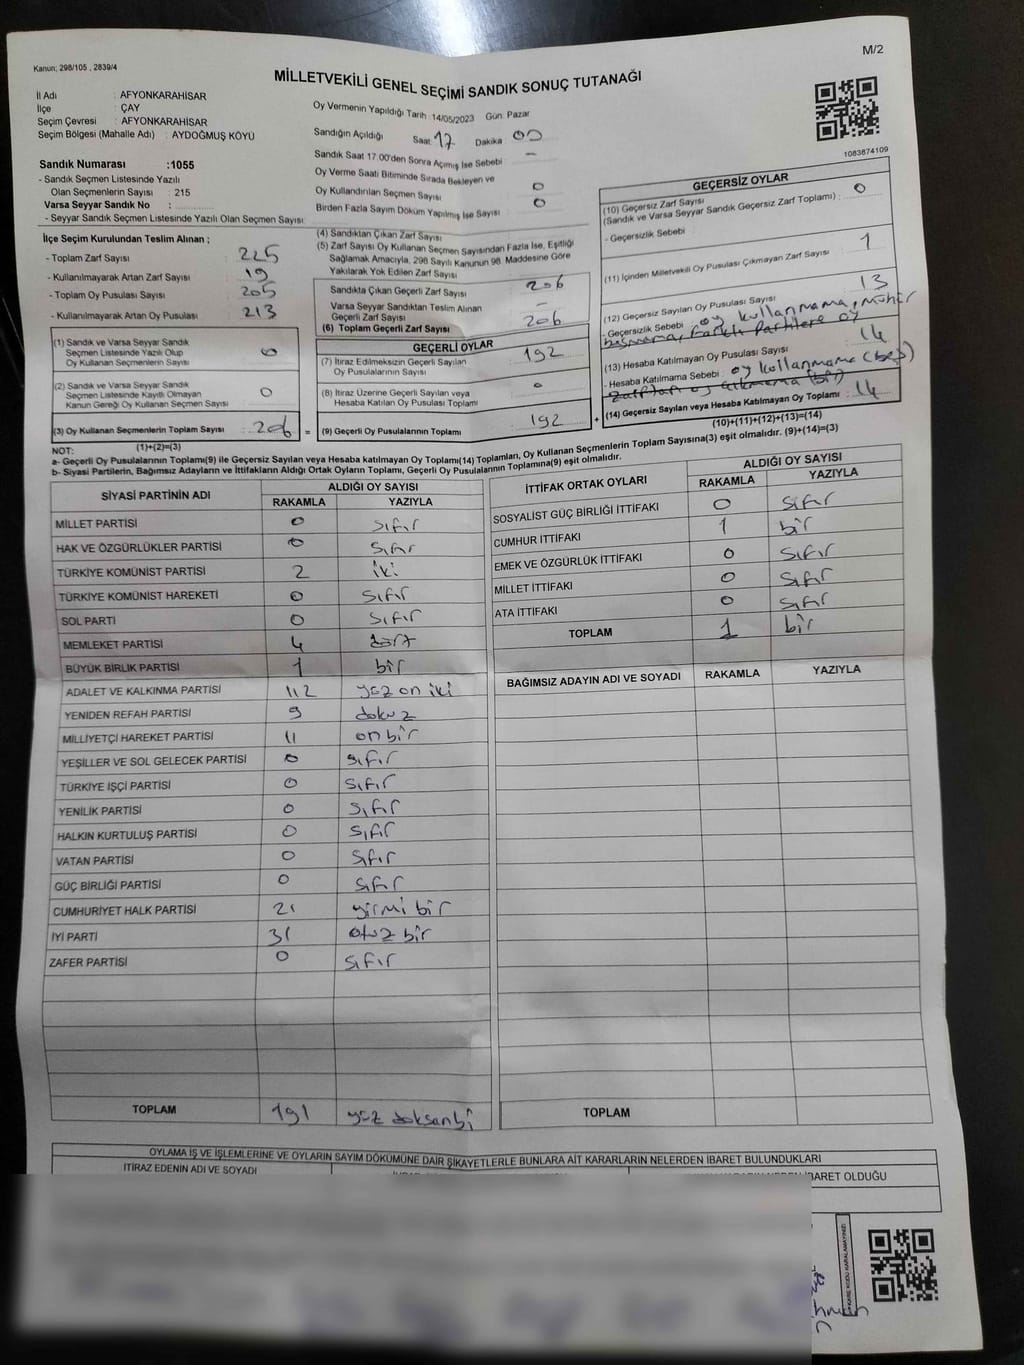 M/2
Kanun; 298/105 , 2839/4
MİLLETVEKİLİ GENEL SEÇİMİ SANDIK SONUÇ TUTANAĞI
İl Adı : AFYONKARAHİSAR
İlçe : ÇAY
Seçim Çevresi : AFYONKARAHİSAR
Seçim Bölgesi (Mahalle Adı) : AYDOĞMUŞ KÖYÜ
Oy Vermenin Yapıldığı Tarih : 14/05/2023 Gün: Pazar
Sandığın Açıldığı Saat 17 Dakika 00
Sandık Saat 17:00'den Sonra Açımış İse Sebebi –
Oy Verme Saati Bitiminde Sırada Bekleyen ve
Oy Kullandırılan Seçmen Sayısı 0
Birden Fazla Sayım Döküm Yapılmış İse Sayısı 0
1083874109
Sandık Numarası :1055
- Sandık Seçmen Listesinde Yazılı
Olan Seçmenlerin Sayısı : 215
Varsa Seyyar Sandık No :
- Seyyar Sandık Seçmen Listesinde Yazılı Olan Seçmen Sayısı:
İlçe Seçim Kurulundan Teslim Alınan ;
- Toplam Zarf Sayısı : 225
- Kullanılmayarak Artan Zarf Sayısı : 19
- Toplam Oy Pusulası Sayısı : 205
- Kullanılmayarak Artan Oy Pusulası : 213
(1) Sandık ve Varsa Seyyar Sandık
Seçmen Listesinde Yazılı Olup
Oy Kullanan Seçmenlerin Sayısı 0
(2) Sandık ve Varsa Seyyar Sandık
Seçmen Listesinde Kayıtlı Olmayan
Kanun Gereği Oy Kullanan Seçmen Sayısı : 0
(3) Oy Kullanan Seçmenlerin Toplam Sayısı : 206
(1)+(2)=(3)
(4) Sandıktan Çıkan Zarf Sayısı
(5) Zarf Sayısı Oy Kullanan Seçmen Sayısından Fazla İse, Eşitliği
Sağlamak Amacıyla, 298 Sayılı Kanunun 98. Maddesine Göre
Yakılarak Yok Edilen Zarf Sayısı
Sandıkta Çıkan Geçerli Zarf Sayısı : 206
Varsa Seyyar Sandıktan Teslim Alınan
Geçerli Zarf Sayısı –
(6) Toplam Geçerli Zarf Sayısı : 206
GEÇERLİ OYLAR
(7) İtiraz Edilmeksizin Geçerli Sayılan
Oy Pusulalarının Sayısı 192
(8) İtiraz Üzerine Geçerli Sayılan veya
Hesaba Katılan Oy Pusulası Toplamı 0
= (9) Geçerli Oy Pusulalarının Toplamı 192 +
GEÇERSİZ OYLAR
(10) Geçersiz Zarf Sayısı
(Sandık ve Varsa Seyyar Sandık Geçersiz Zarf Toplamı) : 0
- Geçersizlik Sebebi :
(11) İçinden Milletvekili Oy Pusulası Çıkmayan Zarf Sayısı : 1
(12) Geçersiz Sayılan Oy Pusulası Sayısı : 13
- Geçersizlik Sebebi oy kullanmama, mühür
basmama, farklı partilere oy
(13) Hesaba Katılmayan Oy Pusulası Sayısı : 14
- Hesaba Katılmama Sebebi : oy kullanmama (boş)
zarftan oy çıkmama (bir)
(14) Geçersiz Sayılan veya Hesaba Katılmayan Oy Toplamı : 14
(10)+(11)+(12)+(13)=(14)
NOT:
a- Geçerli Oy Pusulalarının Toplamı(9) ile Geçersiz Sayılan veya Hesaba katılmayan Oy Toplamı(14) Toplamları, Oy Kullanan Seçmenlerin Toplam Sayısına(3) eşit olmalıdır. (9)+(14)=(3)
b- Siyasi Partilerin, Bağımsız Adayların ve İttifakların Aldığı Ortak Oyların Toplamı, Geçerli Oy Pusulalarının Toplamına(9) eşit olmalıdır.
SİYASİ PARTİNİN ADI ALDIĞI OY SAYISI
RAKAMLA YAZIYLA
MİLLET PARTİSİ 0 sıfır
HAK VE ÖZGÜRLÜKLER PARTİSİ 0 sıfır
TÜRKİYE KOMÜNİST PARTİSİ 2 iki
TÜRKİYE KOMÜNİST HAREKETİ 0 sıfır
SOL PARTİ 0 sıfır
MEMLEKET PARTİSİ 4 dört
BÜYÜK BİRLİK PARTİSİ 1 bir
ADALET VE KALKINMA PARTİSİ 112 yüz on iki
YENİDEN REFAH PARTİSİ 9 dokuz
MİLLİYETÇİ HAREKET PARTİSİ 11 on bir
YEŞİLLER VE SOL GELECEK PARTİSİ 0 sıfır
TÜRKİYE İŞÇİ PARTİSİ 0 sıfır
YENİLİK PARTİSİ 0 sıfır
HALKIN KURTULUŞ PARTİSİ 0 sıfır
VATAN PARTİSİ 0 sıfır
GÜÇ BİRLİĞİ PARTİSİ 0 sıfır
CUMHURİYET HALK PARTİSİ 21 yirmi bir
İYİ PARTİ 31 otuz bir
ZAFER PARTİSİ 0 sıfır
TOPLAM 191 yüz doksan bi
İTTİFAK ORTAK OYLARI ALDIĞI OY SAYISI
RAKAMLA YAZIYLA
SOSYALİST GÜÇ BİRLİĞİ İTTİFAKI 0 sıfır
CUMHUR İTTİFAKI 1 bir
EMEK VE ÖZGÜRLÜK İTTİFAKI 0 sıfır
MİLLET İTTİFAKI 0 sıfır
ATA İTTİFAKI 0 sıfır
TOPLAM 1 bir
BAĞIMSIZ ADAYIN ADI VE SOYADI RAKAMLA YAZIYLA
TOPLAM
OYLAMA İŞ VE İŞLEMLERİNE VE OYLARIN SAYIM DÖKÜMÜNE DAİR ŞİKAYETLERLE BUNLARA AİT KARARLARIN NELERDEN İBARET BULUNDUKLARI
İTİRAZ EDENİN ADI VE SOYADI
İBARET OLDUĞU